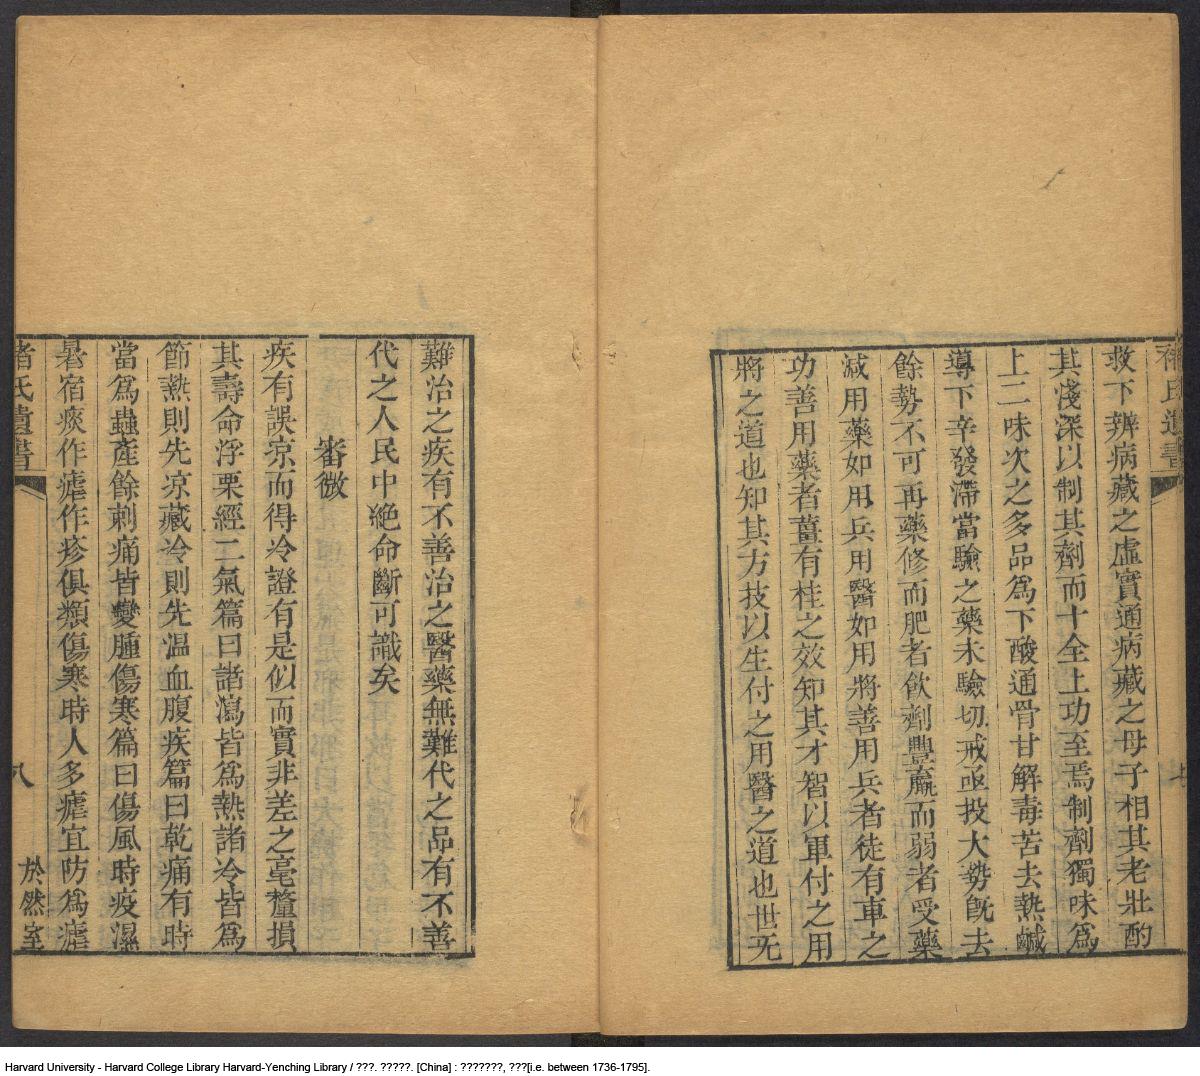 褚氏遺書
七
救下辨病藏之虛實通病藏之母子相其老壯酌
其淺深以制其劑而十全上功至焉制劑獨味爲
上二味次之多品爲下酸通骨甘解毒苦去熱鹹
導下辛發滯當驗之藥未驗切戒亟投大勢旣去
餘勢不可再藥修而肥者飲劑豐羸而弱者受藥
減用藥如用兵用醫如用將善用兵者徒有車之
功善用藥者薑有桂之效知其才智以軍付之用
將之道也知其方技以生付之用醫之道也世无
難治之疾有不善治之醫藥無難代之品有不善
代之人民中絶命斷可識矣
審微
疾有誤凉而得冷證有是似而實非差之毫釐損
其壽命浮栗經二氣篇曰諸瀉皆爲熱諸冷皆爲
節熱則先凉藏冷則先温血腹疾篇曰乾痛有時
當爲蟲產餘刺痛皆變腫傷寒篇曰傷風時疫濕
暑宿痰作瘧作疹俱類傷寒時人多瘧宜防爲瘧
褚氏遺書
八
於然室
Harvard University - Harvard College Library Harvard-Yenching Library / ???. ?????. [China] : ???????, ???[i.e. between 1736-1795].